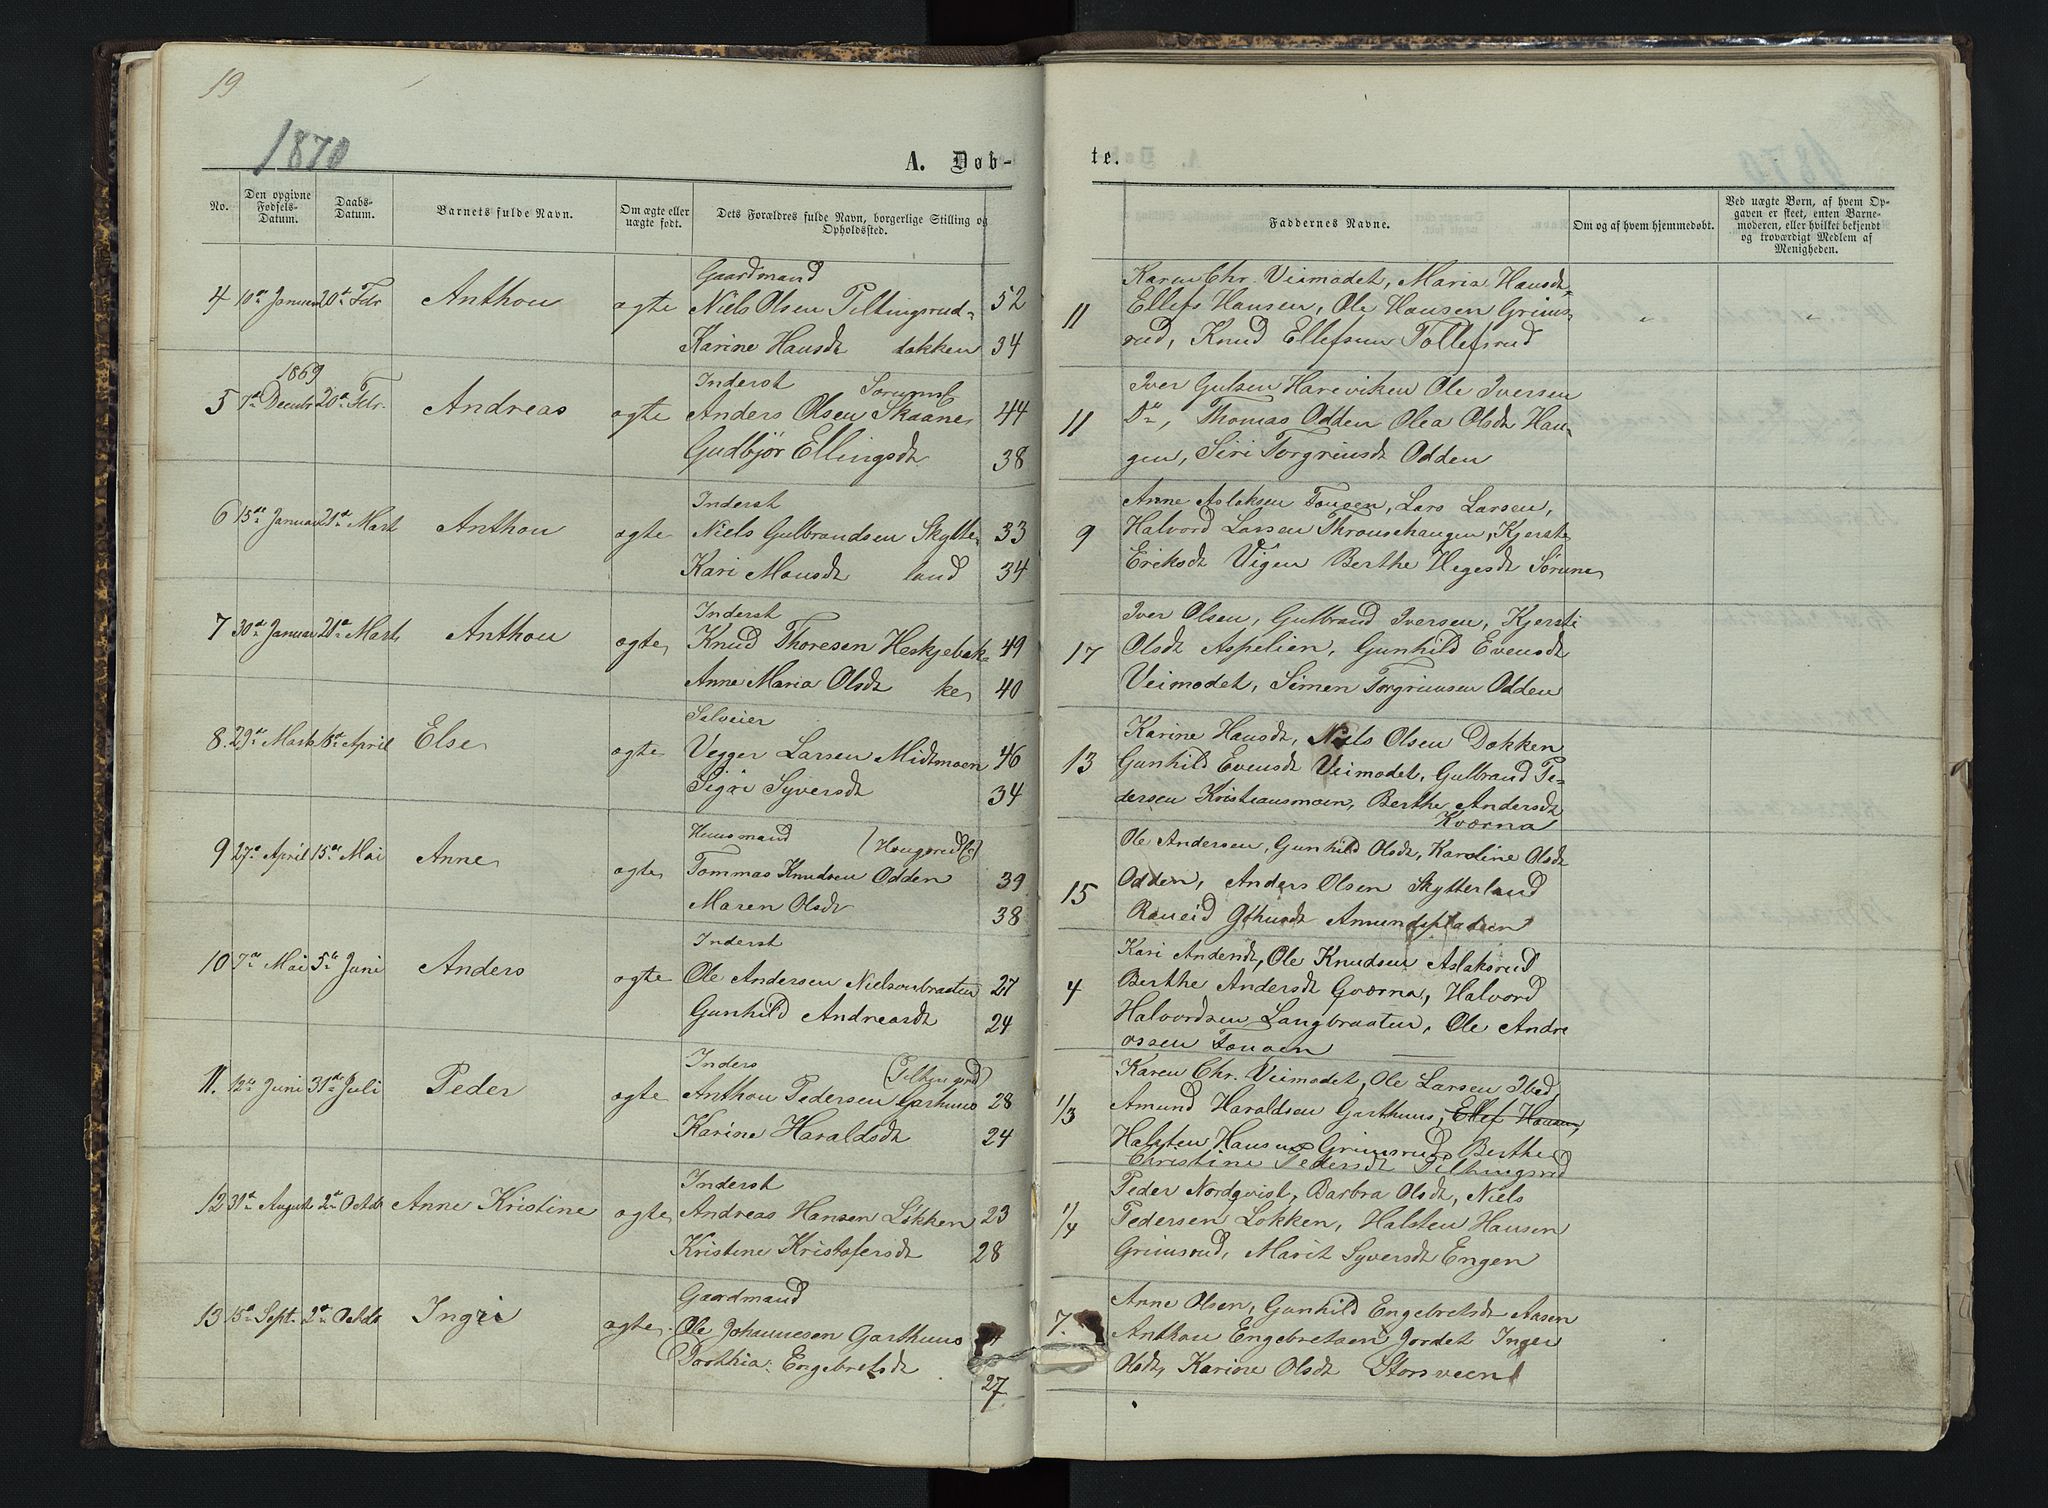 19
1870
A. Døb-
te.
No.
Den opgivne Fødsels-Datum.
Daabs-Datum.
Barnets fulde Navn.
Om ægte eller uægte født.
Dets Forældres fulde Navn, borgerlige Stilling og Opholdssted.
Faddernes Navne.
Om og af hvem hjemmedøbt.
Ved uægte Børn, af hvem Opgaven er skeet, enten Barnemoderen, eller hvilket bekjendt og troværdigt Medlem af Menigheden.
Gaardmand
4 10de Januar 20de Febr Anthon ægte Niels Olsen Piltingsrud- 52
Karine Hansdt dokken 34
11
Karen Chr. Veimodet, Maria Hansdt
Ellefs Hansen, Ole Hansen Grims-
rud, Knud Ellefsen Tollefsrud
1869
Inderst
5 7de Decbr 20de Febr. Andreas ægte Anders Olsen Skaane 44
Gudbjør Ellingsdt 38
11
Iver Gulsen Hareviken Ole Iversen
Do, Thomas Odden Olea Olsdt Hau-
gen, Siri Torgrimsdt Odden
Inderst
6 15de Januar 21de Marts Anthon ægte Niels Gulbrandsen Skytte- 33
Kari Monsdt land 34
9
Anne Aslaksen Toueen, Lars Larsen,
Halvord Larsen Thronsehaugen, Kjersti
Eriksdt Vigen Berthe Hegesdt Sørum
Inderst
7 30de Januar 21de Marts Anthon ægte Knud Thoresen Heskjebak- 49
Anne Maria Olsdt ke 40
17
Iver Olsen, Gulbrand Iversen, Kjersti
Olsdt Aspelien, Gunhild Evensdt
Veimodet, Simen Torgrimsen Odden
Selveier
8. 29de Marts 18de April Else ægte Vegger Larsen Midtmoen 46
Sigri Syversdt 34
13
Karine Hansdt, Niels Olsen Dokken
Gunhild Evensdt Veimodet, Gulbrand Pe-
dersen Kristiansmoen, Berthe Andersdt
Kværna
Huusmand
9 27de April 15de Mai Anne ægte Tommas Knudsen Odden 39
Maren Olsdt 38
15
Ole Andersen, Gunhild Olsdt, Karoline Olsdt
Odden, Anders Olsen Skytterland
Raneid Gøhusdt Amundspladsen
Inderst
10 7de Mai 5te Juni Anders ægte Ole Andersen Nielsonbraaten 27
Gunhild Andreasdt 24
4
Kari Andersdt, Ole Knudsen Aslaksrud
Berthe Andersdt Gværna, Halvord
Halvordsen Langbraaten, Ole Andre
assen Toueen
Inders
11. 12te Juni 31de Juli Peder ægte Anthon Pedersen Garthuus 28
Karine Haraldsdt 24
1/3
Karen Chr. Veimodet, Ole Larsen Ibed,
Amund Haraldsen Garthuus, Ellef Hansen,
Halsten Hansen Grimsrud, Berthe
Christine Pedersdt Piltingsrud
Inderst
12 31de August 2de Octbr Anne Kristine ægte Andreas Hansen Løkken 23
Kristine Kristofersdt 28
1/4
Peder Nordqvist, Barbra Olsdt, Niels
Pedersen Løkken, Halsten Hansen
Grimsrud, Marit Syversdt Engen
Gaardmand
13 15de Sept. 2de Octbr Ingri ægte. Ole Johannesen Garthuus
Dorthia Engebretsdt 27
7.
Anne Olsen, Gunhild Engebretsdt Aasen
Anthon Engebretsen Jordet Inger
Olsdt, Karine Olsdt Storsveen